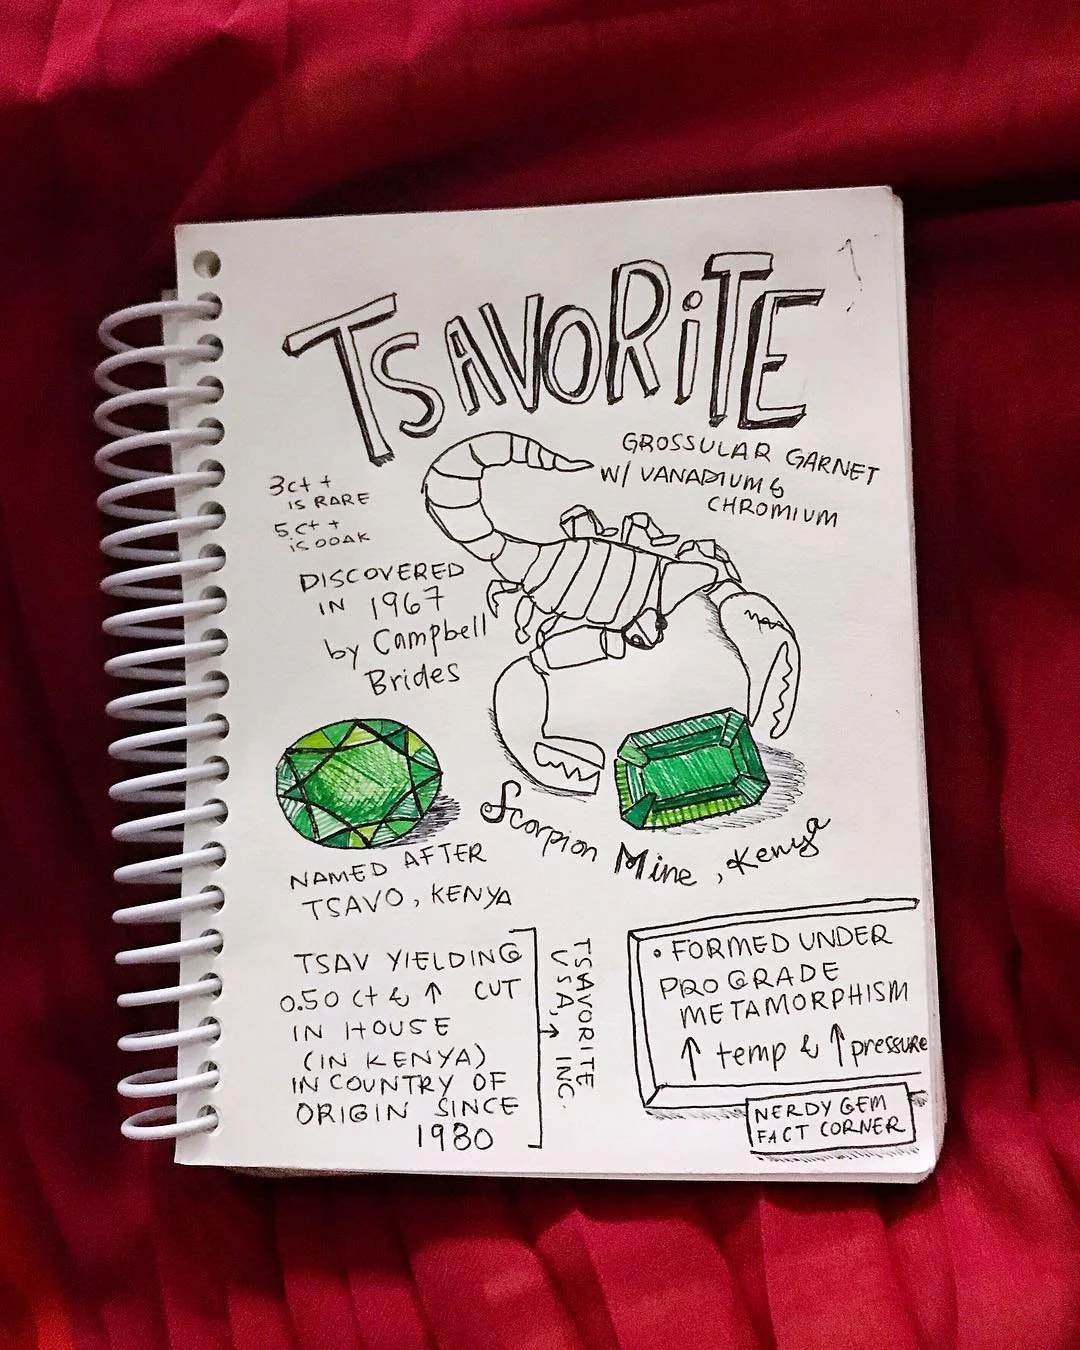 TSAVORiTE
GROSSULAR GARNET
W/ VANADIUM &
CHROMIUM
3ct +
IS RARE
5ct +
is OOAK
DISCOVERED
IN 1967
by Campbell
Brides
Scorpion Mine, Kenya
NAMED AFTER
TSAVO, KENYA
TSAV YIELDING
0.50 ct & ↑ CUT
IN HOUSE
(IN KENYA)
IN COUNTRY OF
ORIGIN SINCE
1980
TSAVORITE
USA, → INC.
• FORMED UNDER
PROGRADE
METAMORPHISM
↑ temp & ↑ pressure
NERDY GEM
FACT CORNER